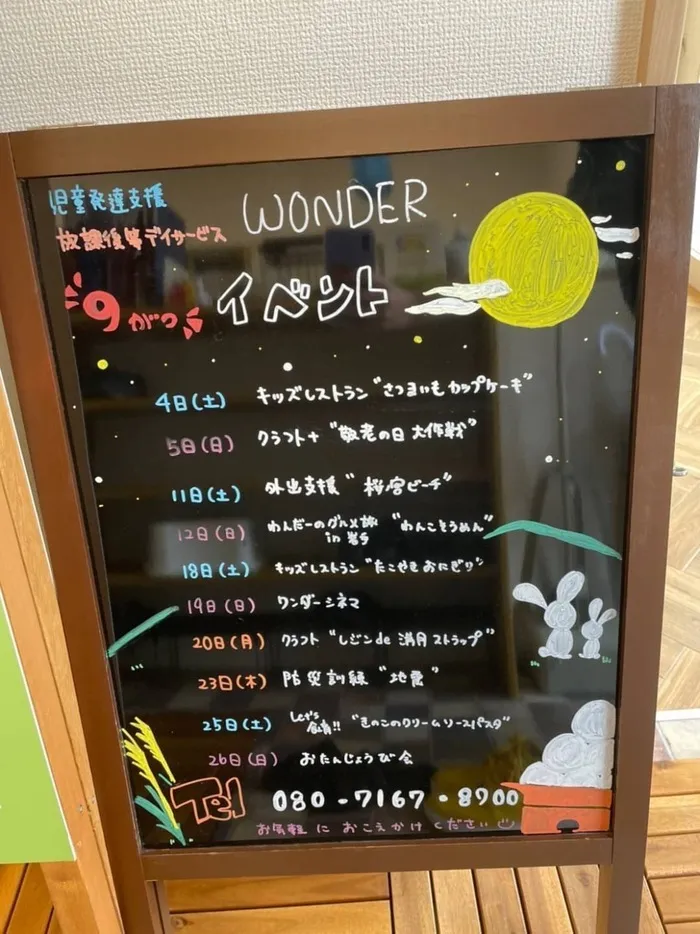 児童発達支援
放課後等デイサービス
WONDER
9がつ
イベント
4日(土) キッズレストラン"さつまいもカップケーキ"
5日(日) クラフト+"敬老の日大作戦"
11日(土) 外出支援"桜宮ビーチ"
12日(日) わんだーのグルメ旅 "わんこそうめん"
in 岩手
18日(土) キッズレストラン"たこやきおにぎり"
19日(日) ワンダーシネマ
20日(月) クラフト"レジンde満月ストラップ"
23日(木) 防災訓練"地震"
25日(土) Let's
食育!! "きのこのクリームソースパスタ"
26日(日) おたんじょうび会
Tel 080-7167-8900
お気軽におこえかけください